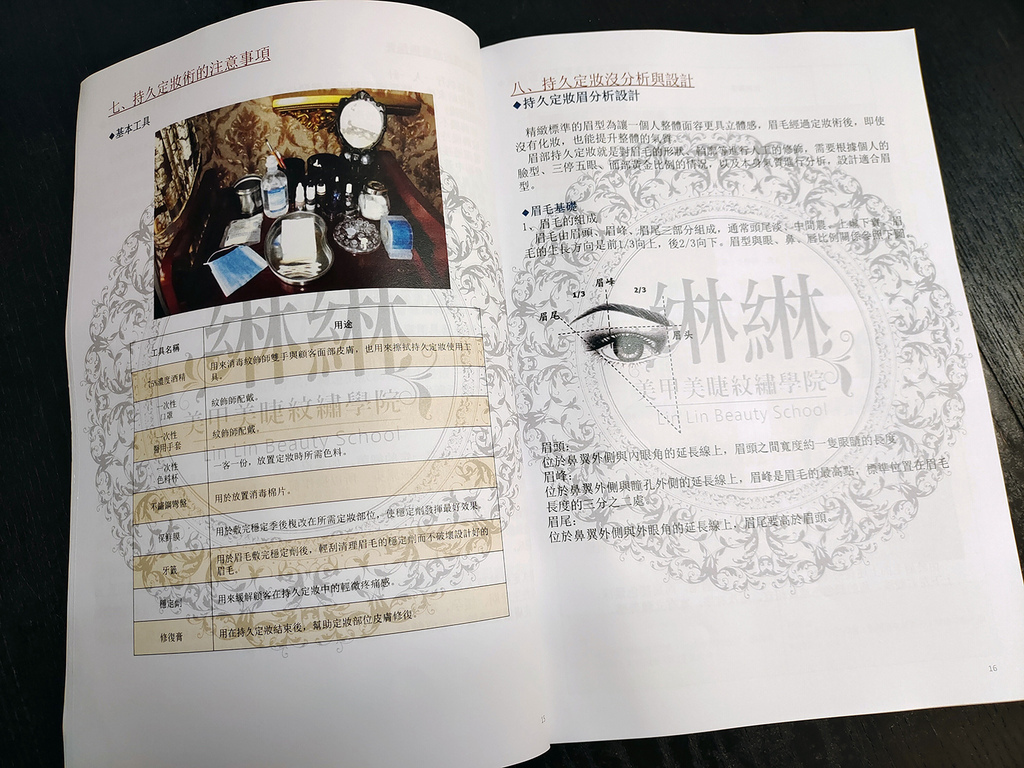 七、持久定妝術的注意事項
◆基本工具
工具名稱 用途
75%濃度酒精 用來消毒紋飾師雙手與顧客面部皮膚，也用來擦拭持久定妝使用工
具。
一次性
口罩 紋飾師配戴。
一次性
醫用手套 紋飾師配戴。
一次性
色料杯 一客一份，放置定妝時所需色料。
不鏽鋼彎盤 用於放置消毒棉片。
保鮮膜 用於敷完穩定季後復改在所需定妝部位，使穩定劑發揮最好效果。
牙籤 用於眉毛敷完穩定劑後，輕刮清理眉毛的穩定劑而不破壞設計好的
眉毛。
穩定劑 用來緩解顧客在持久定妝中的輕微疼痛感。
修復膏 用在持久定妝結束後，幫助定妝部位皮膚修復。
15
八、持久定妝沒分析與設計
◆持久定妝眉分析設計
精緻標準的眉型為讓一個人整體面容更具立體感，眉毛經過定妝術後，即使
沒有化妝，也能提升整體的氣質。
眉部持久定妝就是對眉毛的形狀、等進行人工的修飾，需要根據個人的
臉型、三停五眼、面部黃金比例的情況，以及本身氣質進行分析，設計適合眉
型。
◆眉毛基礎
1、眉毛的組成
眉毛由眉頭、眉峰、眉尾三部分組成，通常頭尾淡、中間濃、上虛下實，眉
毛的生長方向是前1/3向上，後2/3向下。眉型與眼、鼻、唇比例關係參照下圖
眉峰
1/3 2/3
眉尾
眉头
眉頭:
位於鼻翼外側與內眼角的延長線上，眉頭之間寬度約一隻眼睛的長度
眉峰:
位於鼻翼外側與瞳孔外側的延長線上，眉峰是眉毛的最高點，標準位置在眉毛
長度的三分之二處
眉尾:
位於鼻翼外側與外眼角的延長線上，眉尾要高於眉頭。
16
綝綝
美甲美睫紋繡學院
Lin Lin Beauty School